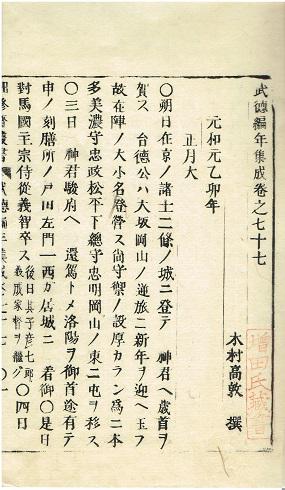 武徳編年集成巻之七十七
木村高敦 撰
増田氏蔵書
元和元乙卯年
正月大
○朔日在京ノ諸士二條ノ城ニ登テ 神君ヘ歳首ヲ
賀ス 台徳公ハ大坂岡山ノ逆旅ニ新年ヲ迎ヘ玉フ
故在陣ノ大小名登営ス尚守禦ノ設厚カラン為ニ本
多美濃守忠政松平下総守忠明岡山ノ東ニ屯ヲ移ス
○三日 神君駿府ヘ 還駕トメ洛陽ヲ御首途有テ
申ノ刻膳所ノ戸田左門一西カ居城ニ 着御○是日
對馬國主宗侍従義智卒ス 後日其子彦七郎義成家督ヲ継ク ○四日